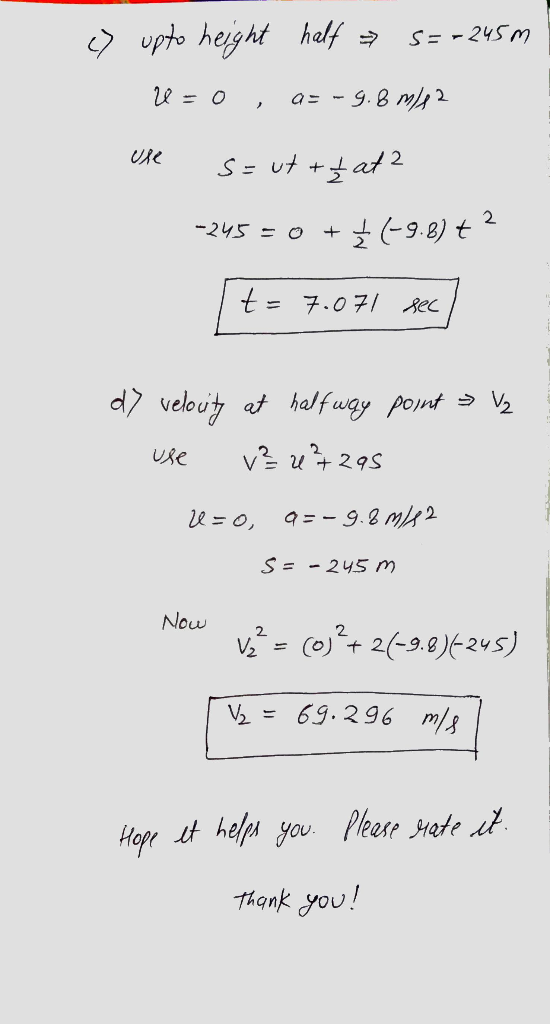 c) upto height half ⇒ S = -245 m
u = 0 , a = -9.8 m/s2
use S = ut + 1/2 at2
-245 = 0 + 1/2 (-9.8) t2
t = 7.071 sec
d) velocity at halfway point ⇒ V2
use v2 = u2 + 2as
u = 0, a = -9.8 m/s2
S = -245 m
Now V2^2 = (0)2 + 2(-9.8)(-245)
V2 = 69.296 m/s
Hope it helps you. Please rate it.
Thank you!